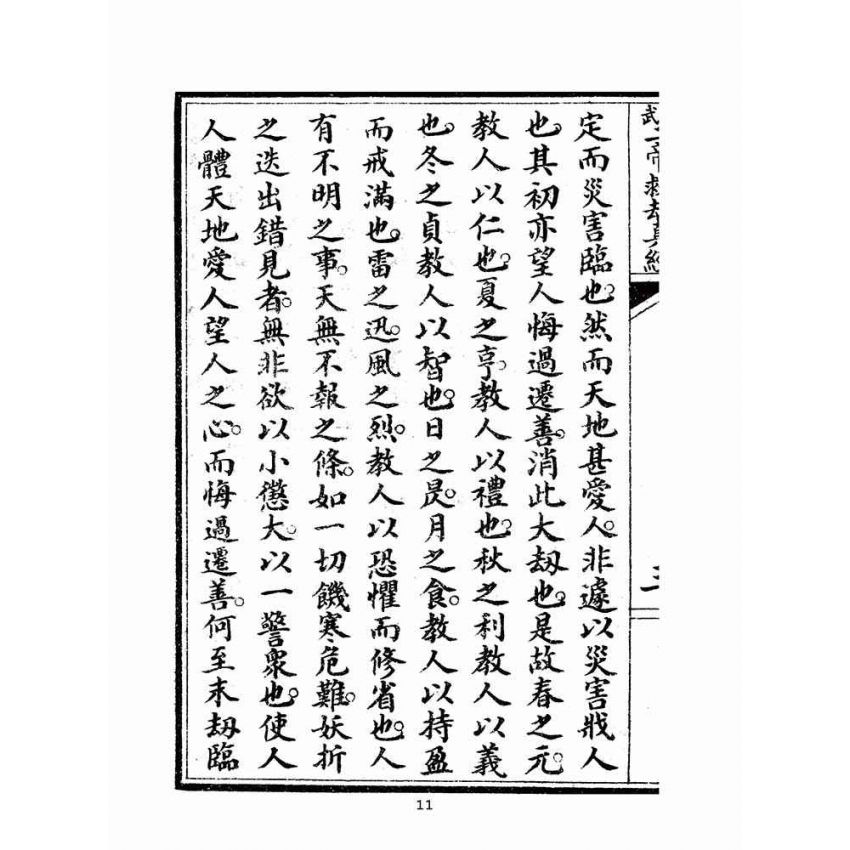 武二帝救劫真經
三
定而災害臨也。然而天地甚愛人。非遽以災害戕人
也。其初亦望人悔過遷善。消此大劫也。是故春之元。
教人以仁也。夏之亨。教人以禮也。秋之利教人以義
也。冬之貞教人以智也。日之昃。月之食。教人以持盈
而戒滿也。雷之迅。風之烈。教人以恐懼而修省也。人
有不明之事。天無不報之條。如一切饑寒危難。妖折
之迭出錯見者。無非欲以小懲大。以一警衆也。使人
人體天地愛人望人之心。而悔過遷善。何至末劫臨
11